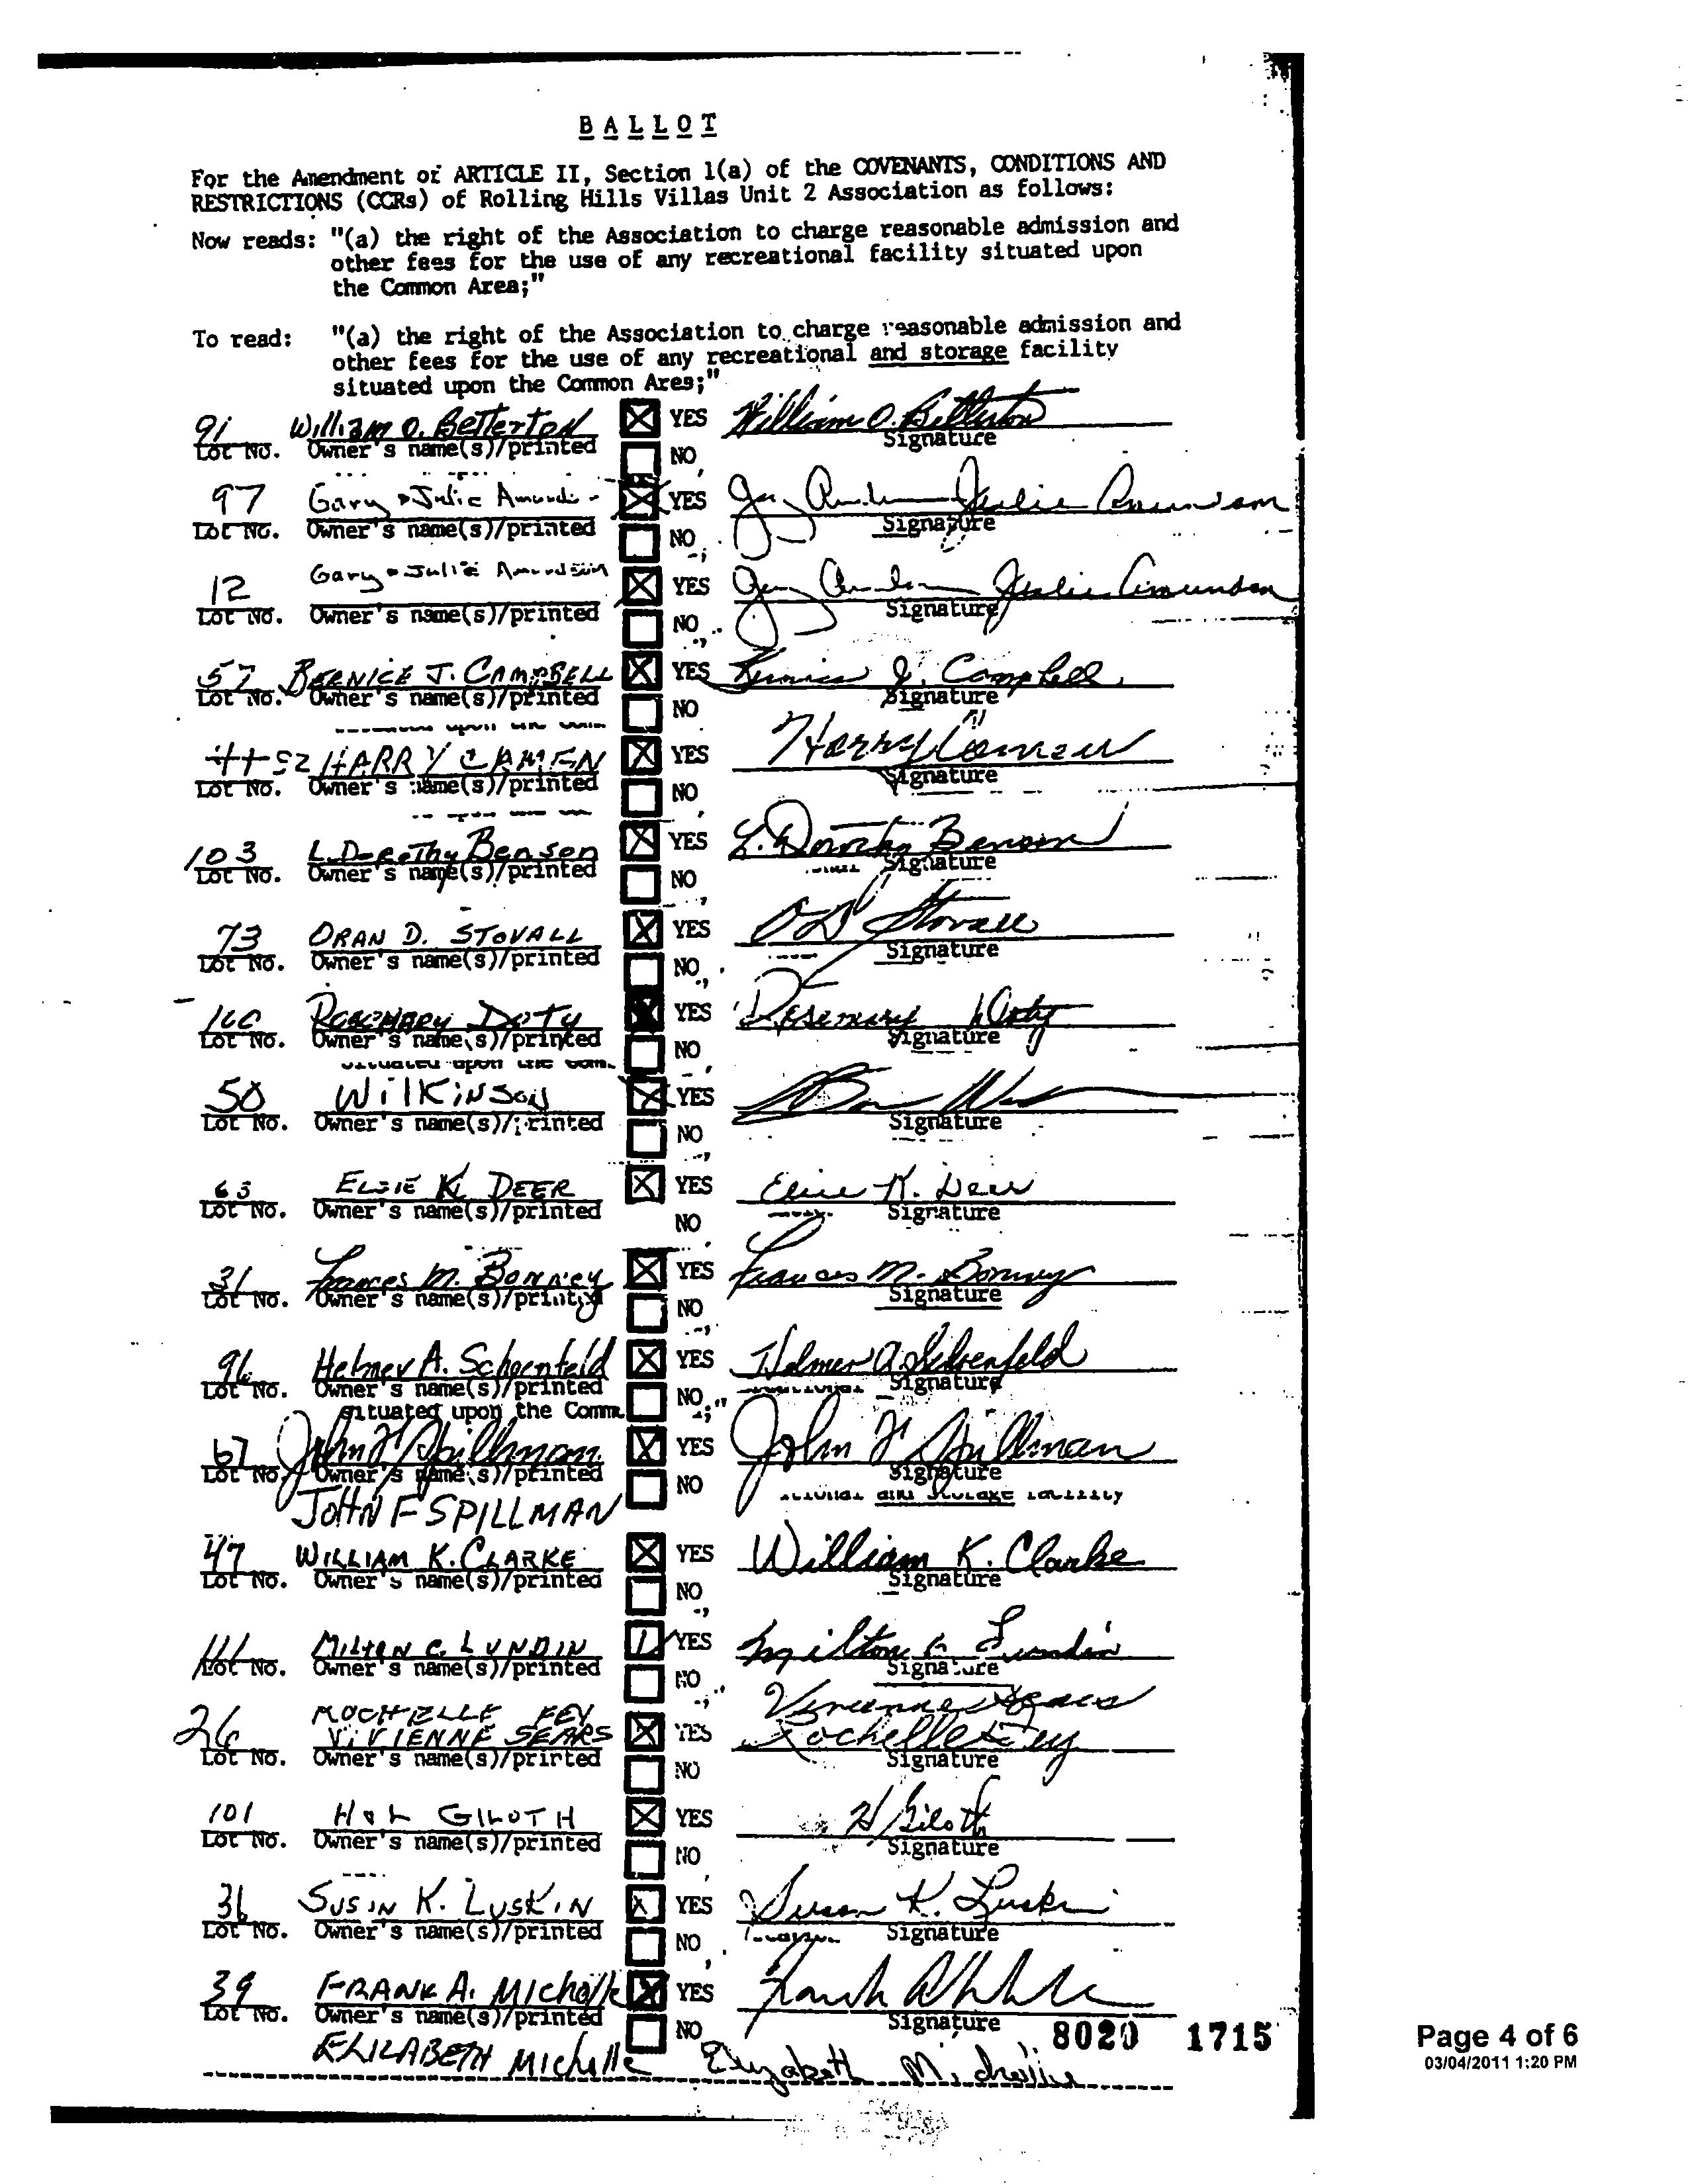 BALLOT
For the Amendment of ARTICLE II, Section 1(a) of the COVENANTS, CONDITIONS AND
RESTRICTIONS (CCRs) of Rolling Hills Villas Unit 2 Association as follows:
Now reads: "(a) the right of the Association to charge reasonable admission and
other fees for the use of any recreational facility situated upon
the Common Area;"
To read: "(a) the right of the Association to charge reasonable admission and
other fees for the use of any recreational and storage facility
situated upon the Common Area;"
91 William O. Betterton YES William O. Betterton
Lot No. Owner's name(s)/printed NO Signature
97 Gary & Julie YES
Lot No. Owner's name(s)/printed NO Signature
12 Gary & Julie Amundson YES Julie Amundson
Lot No. Owner's name(s)/printed NO Signature
57 BERNICE J. CAMPBELL YES Bernice J. Campbell
Lot No. Owner's name(s)/printed NO Signature
52 HARRY CAMEN YES Harry Camen
Lot No. Owner's name(s)/printed NO Signature
103 L. Dorothy Benson YES L. Dorothy Benson
Lot No. Owner's name(s)/printed NO Signature
73 ORAN D. STOVALL YES OD Stovall
Lot No. Owner's name(s)/printed NO Signature
ROSEMARY DOTY YES Rosemary Doty
Lot No. Owner's name(s)/printed NO Signature
50 WILKINSON YES
Lot No. Owner's name(s)/printed NO Signature
63 ELSIE K. DEER YES Elsie K. Deer
Lot No. Owner's name(s)/printed NO Signature
31 Frances M. Bonney YES Frances M. Bonney
Lot No. Owner's name(s)/printed NO Signature
96 Helmer A. Schoenfeld YES Helmer A. Schoenfeld
Lot No. Owner's name(s)/printed NO Signature
situated upon the Comm
67 John F Spillman YES John F Spillman
Lot No. Owner's name(s)/printed NO Signature
JOHN F SPILLMAN
47 WILLIAM K. CLARKE YES William K. Clarke
Lot No. Owner's name(s)/printed NO Signature
111 MILTON C. LUNDIN YES Milton C. Lundin
Lot No. Owner's name(s)/printed NO Signature
ROCHELLE FEY Vivienne Sears
26 VIVIENNE SEARS YES Rochelle Fey
Lot No. Owner's name(s)/printed NO Signature
101 H & L GILOTH YES H Giloth
Lot No. Owner's name(s)/printed NO Signature
36 SUSAN K. LUSKIN YES Susan K. Luskin
Lot No. Owner's name(s)/printed NO Signature
39 FRANK A. Michelle YES
Lot No. Owner's name(s)/printed NO Signature
8020 1715
ELIZABETH Michelle Elizabeth Michelle
Page 4 of 6
03/04/2011 1:20 PM